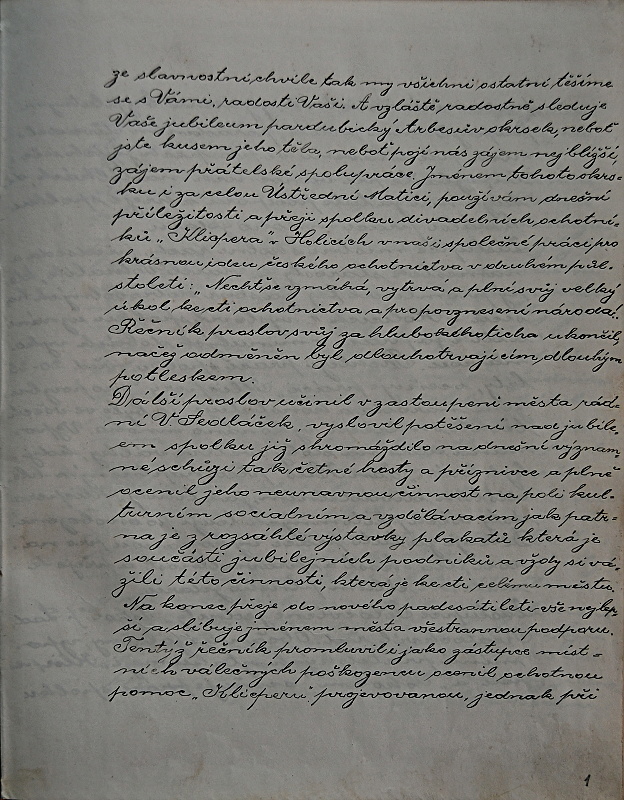 ze slavnostní chvíle tak my všichni ostatní těšíme
se s Vámi, radosti Vaší. A vzláště radostně sleduje
Vaše jubileum pardubický Arbesův okrsek, neboť
jste kusem jeho těla, neboť pojí nás zájem nejbližší,
zájem přátelské spolupráce. Jménem tohoto okrs-
ku i za celou Ústřední Matici, používám dnešní
příležitosti a přeji spolku divadelních ochotní-
ků „Klicpera" v Holicích v naší společné práci pro
krásnou ideu českého ochotnictva v druhém půl-
století: „Nechť se vzmáhá, vytrvá a plní svůj velký
úkol ke cti ochotnictva a pro povznesení národa!
Řečník proslov svůj za hlubokého ticha ukončil,
načež odměněn byl, dlouhotrvajícím, dlouhým
potleskem.
Další proslov učinil v zastoupení města rad-
ní V. Sedláček, vyslovil potěšení nad jubile-
em spolku již shromáždilo na dnešní význam-
né schůzi tak četné hosty a příznivce a plně
ocenil jeho neunavnou činnost na poli kul-
turním sociálním a vzdělávacím jak patr-
na je z rozsáhlé výstavky plakatů která je
součástí jubilejních podniků a vždy si vá-
žili této činnosti, která je ke cti celému městu.
Na konec přeje do nového padesátiletí vše nejlep-
ší a slibuje jménem města všestrannou podporu.
Tentýž řečník promluvil i jako zástupce míst-
ních válečných poškozenců ocenil ochotnou
pomoc „Klicperu" projevovanou, jednak při
1